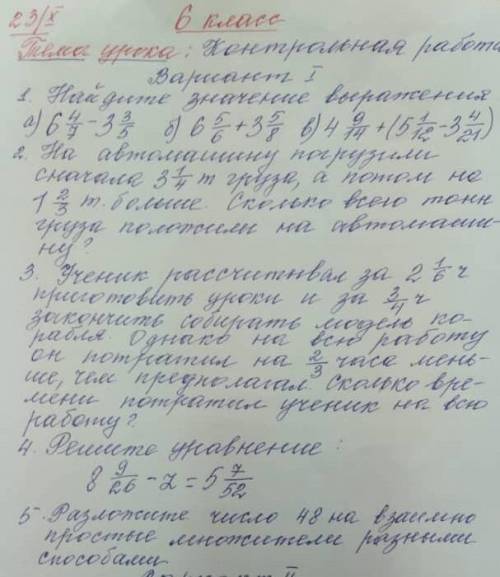 23/X 6 класс
Тема урока: Контрольная работа
Вариант I
1. Найдите значение выражения
а) 6 4/7 - 3 3/5 б) 6 5/6 + 3 5/8 в) 4 9/14 + (5 1/12 - 3 4/21)
2. На автомашину погрузили
сначала 3 1/4 т груза, а потом на
1 2/3 т. больше. Сколько всего тонн
груза положили на автомаши-
ну?
3. Ученик рассчитывал за 2 1/6 ч
приготовить уроки и за 3/4 ч
закончить собирать модель ко-
рабля. Однако на всю работу
он потратил на 2/3 часа мень-
ше, чем предполагал. Сколько вре-
мени потратил ученик на всю
работу?
4. Решите уравнение:
8 9/26 - z = 5 7/52
5. Разложите число 48 на взаимно
простые множители разными
способами.
Вариант II